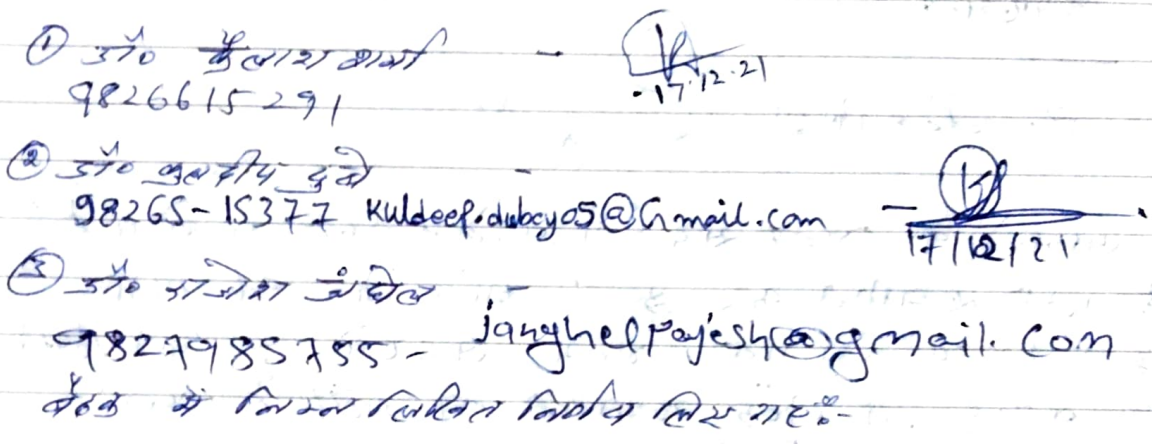 ① डॉ० कैलाश शर्मा - 17.12.21
9826615291
② डॉ० कुलदीप दुबे -
98265-15377 Kuldeep.dubey05@Gmail.com - 17/12/21
③ डॉ० राजेश जंघेल -
9827985755 - janghelrajesh@gmail.com
बैठक में निम्न लिखित निर्णय लिए गए:-